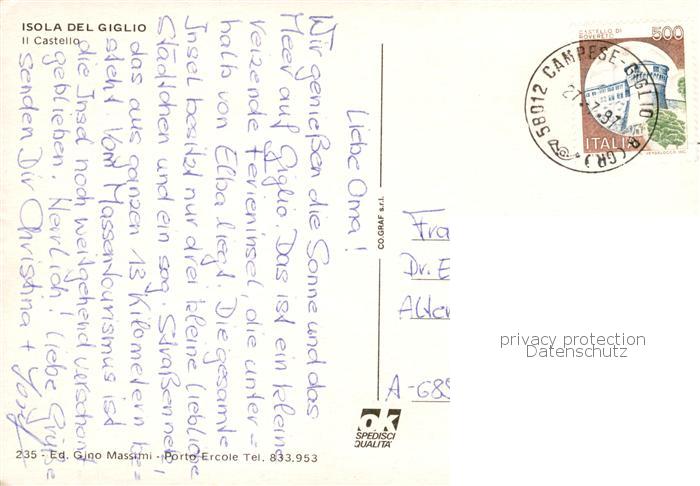 ISOLA DEL GIGLIO
Il Castello
Liebe Oma!
Wir genießen die Sonne und das
Meer auf Giglio. Das ist ein kleine
reizende Ferieninsel, die unter=
halb von Elba liegt. Die gesamte
Insel besitzt nur drei kleine liebliche
Städtchen und ein sog. Straßennetz,
das aus ganzen 13 Kilometern be=
steht. Vom Massentourismus ist
die Insel noch weitgehend verschont
geblieben. Herrlich! Liebe Grüße
senden Dir Christina +
CO.GRAF s.r.l.
CASTELLO DI
ROVERETO
500
ITALIA
58012 CAMPESE-GIGLIO
(GR)
Fra
Dr. E
Alter
A-688
privacy protection
Datenschutz
ok
SPEDISCI
QUALITA'
235 - Ed. Gino Massimi - Porto Ercole Tel. 833.953